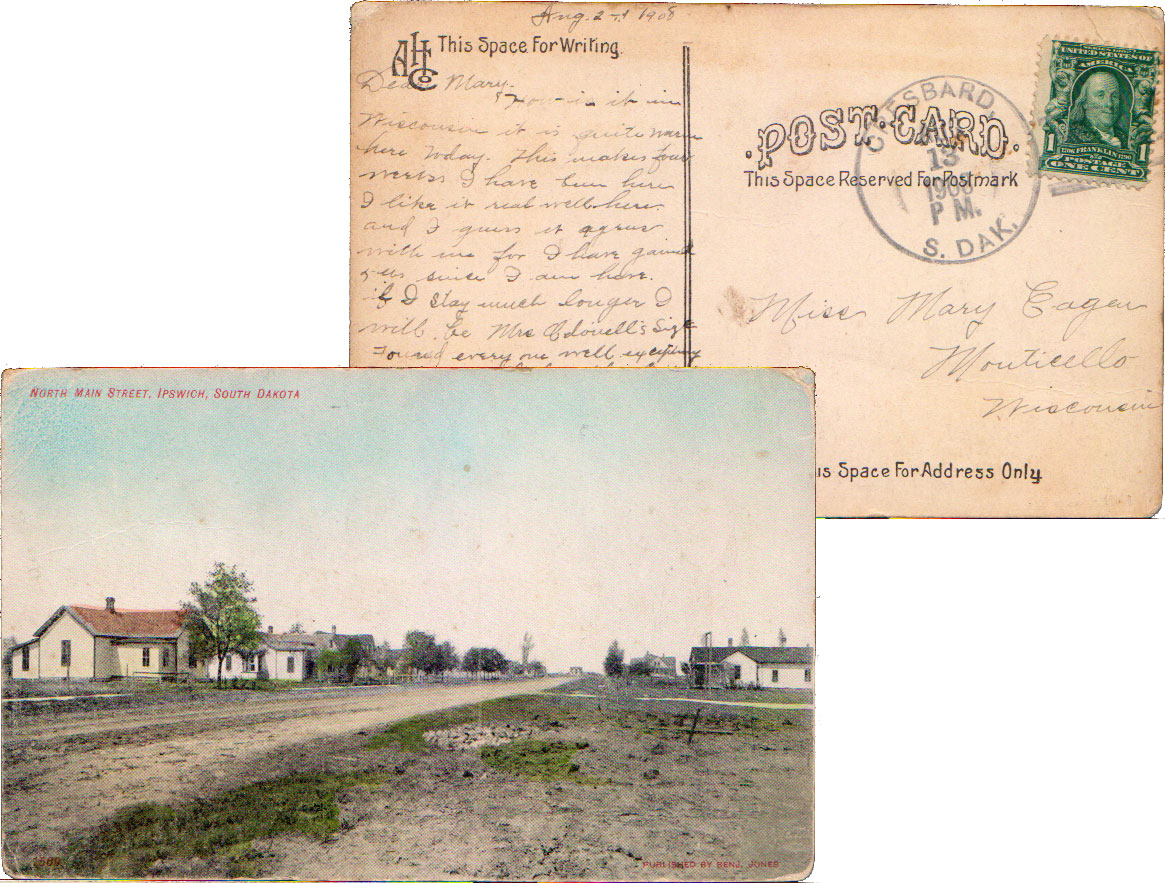 Aug. 1908
AHCo
This Space For Writing
Dear Mary.
How is it in
Wisconsin it is quite warm
here Today. This makes four
weeks I have been here
I like it real well here.
and I guess it agrees
with me for I have gained
since I am here.
if I stay much longer I
will be Mrs size
Found every one well excepting
POST CARD.
This Space Reserved For Postmark
CHESBARD,
13
1908
P M.
S. DAK.
UNITED STATES OF
AMERICA
1706 FRANKLIN 1790
1 POSTAGE 1
ONE CENT
Miss Mary Eagen
Monticello
Wisconsin
is Space For Address Only
NORTH MAIN STREET, IPSWICH, SOUTH DAKOTA
PUBLISHED BY BENJ. JONES